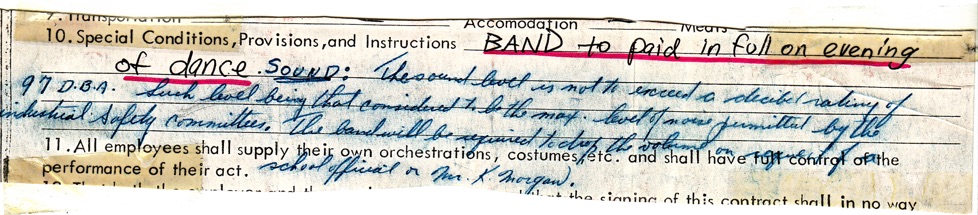 7. Transportation Accomodation Meals
10. Special Conditions, Provisions, and Instructions BAND to paid in full on evening
of dance. SOUND: The sound level is not to exceed a decibel rating of
97 D.B.A. Such level being that considered to be the max. level of noise permitted by the
industrial Safety committee. The band will be required to drop the volume on request of a
11. All employees shall supply their own orchestrations, costumes, etc. and shall have full control of the
performance of their act. school official or Mr. K. Morgan.
that the signing of this contract shall in no way